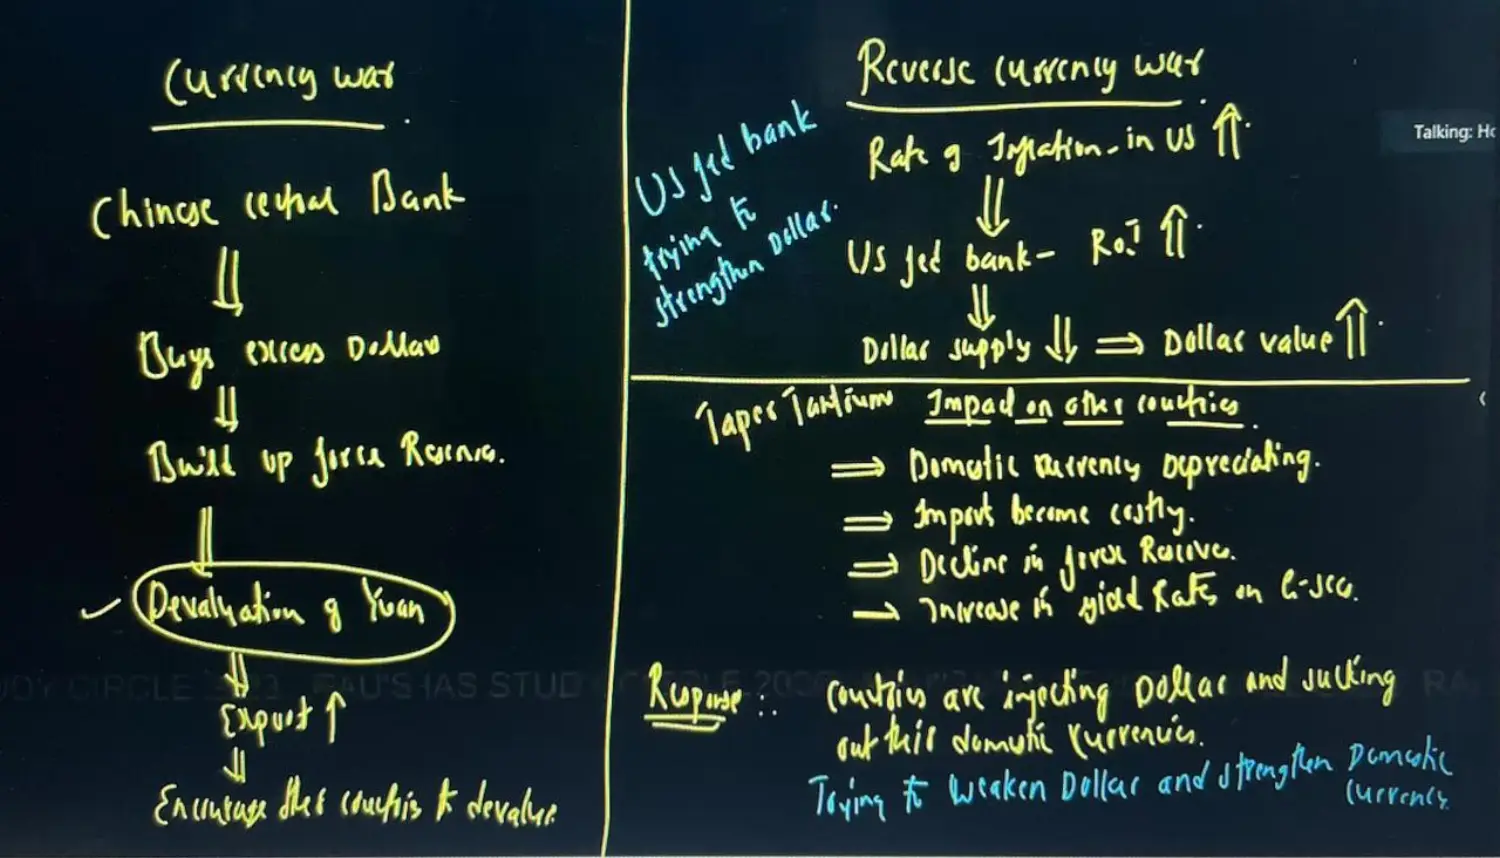 Currency war
Chinese central Bank
Buys excess Dollars
Build up forex Reserves.
Devaluation of Yuan
Export ↑
Encourage other countries to devalue
Reverse currency war
US fed bank
trying to
strengthen Dollar.
Rate of Inflation - in US ⇑
US fed bank - RoI ⇑
Dollar supply ⇓ ⇒ Dollar value ⇑
Taper Tantrums Impact on other countries
⇒ Domestic currency Depreciating.
⇒ Imports become costly.
⇒ Decline in forex Reserves.
→ Increase in yield Rates on G-sec.
Response:. Countries are injecting Dollar and sucking
out their domestic currencies.
Trying to weaken Dollar and strengthen Domestic
currency
Talking: Ho
DY CIRCLE RAU'S IAS STUD